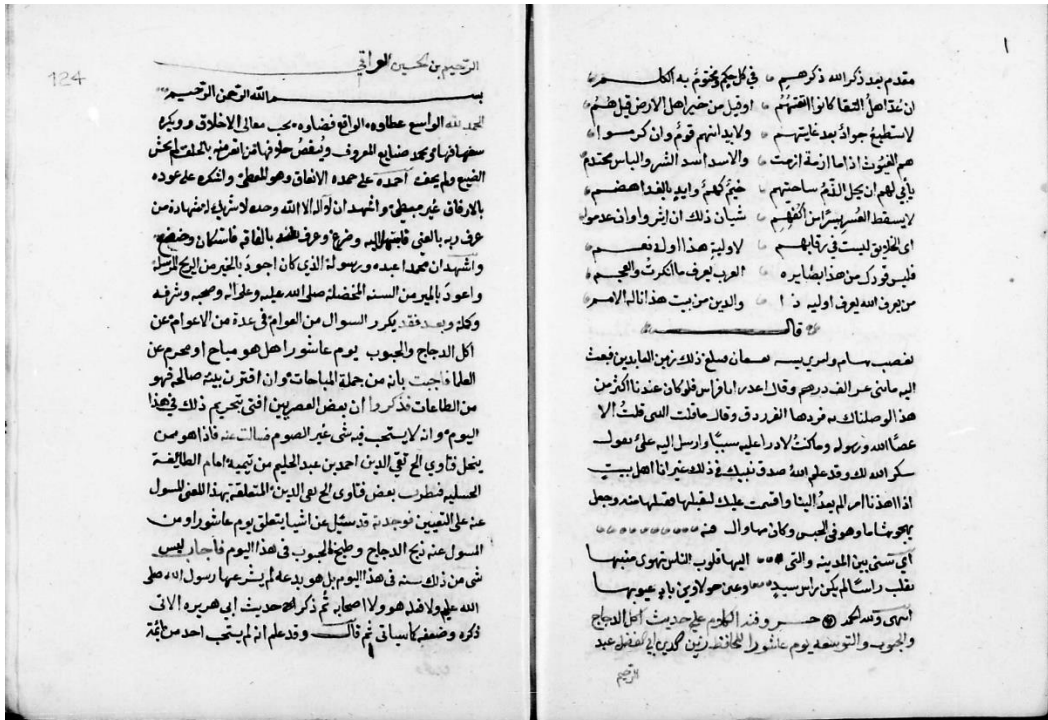 ١
مقدم بعد ذكر الله ذكرهم في كل حكم ومختوم به الكلم
ان عد اهل التقا كانوا ائمتهم او قيل من خير اهل الارض قيل هم
لا يستطيع جواد بعد غايتهم ولا يدانيهم قوم وان كرموا
هم الغيوث اذا ما ازمة ازمت والاسد اسد الشرى والباس محتدم
يابى لهم ان يحل الذم ساحتهم خيم كريم وايد بالندا هضم
لا ينقص العسر بسطا من اكفهم سيان ذلك ان اثروا وان عدموا
اي الخلايق ليست في رقابهم لاولية هذا او له نعم
فليس قولك من هذا بضايره العرب تعرف ما انكرت والعجم
من يعرف الله يعرف اوليه ذا والدين من بيت هذا ناله الامم
قال
فغضب هشام فبلغ ذلك زين العابدين فبعث
اليه الف درهم وقال اعذر ابا فراس فلو كان عندنا اكثر من
هذا لوصلناك به فردها الفرزدق وقال ما قلت الذي قلت الا
غضبا لله ورسوله وما كنت لارزا عليه شيئا وارسل اليه علي يقول
شكر الله لك وقد علم الله صدق نيتك في ذلك غير انا اهل بيت
اذا انفذنا امرا لم يعد الينا واقسمت عليك لتقبلها فقبلها منه وجعل
يهجو هشاما وهو في الحبس وكان مما قال فيه
ايحبسني بين المدينه والتي اليها قلوب الناس تهوي منيبها
تقلب راسا لم يكن راس سيد وعين حولا وبن باد عيوبها
انتهى ولله الحمد جزو فيه الكلام على حديث اكل الدجاج
والحبوب والتوسعه يوم عاشورا للحافظ زين الدين ابي الفضل عبد
الرحيم
124
الرحيم بن الحسين العراقي
بسم الله الرحمن الرحيم
الحمد لله الواسع عطاوه الواقع قضاوه يحب معالي الاخلاق ويكره
سفسافها ويحمد صنايع المعروف
الصنيع ولم يخف احمده على حمده الانفاق وهو المعطي واشكره على عوده
بالارفاق غير مبطئ واشهد ان لا اله الا الله وحده لا شريك له شهادة من
عرف ربه بالغنى فابتهل اليه وضرع وعرف نفسه بالفاقه فاستكان وخضع
واشهد ان محمدا عبده ورسوله الذي كان اجود بالخير من الريح المرسلة
واعود بالمير من السنه المخضلة صلى الله عليه وعلى اله وصحبه وشرفه
وكله وبعد فقد تكرر السوال من العوام في عدة من الاعوام عن
اكل الدجاج والحبوب يوم عاشورا هل هو مباح او محرم عن
العلما فاجبت بانه من جملة المباحات وان اقترن بنية صالحه فهو
من الطاعات فذكروا ان بعض العصريين افتى بتحريم ذلك في هذا
اليوم وانه لا يستحب فيه شي غير الصوم فسالت عنه فاذا هو ممن
ينتحل فتاوي الشيخ تقي الدين احمد بن عبد الحليم بن تيمية امام الطائفة
الحنبليه فنظرت بعض فتاوى الشيخ تقي الدين المتعلقه بهذا المعنى المسول
عنه على التعيين فوجدته قد سئل عن اشيا يتعلق يوم عاشورا ومن
المسول عنه ذبح الدجاج وطبخ الحبوب في هذا اليوم فاجاب ليس
شي من ذلك سنه في هذا اليوم بل هو بدعه لم يشرعها رسول الله صلى
الله عليه ولا فعله هو ولا اصحابه ثم ذكر حديث ابي هريره الاتي
ذكره وضعفه كما سياتي ثم قال وقد علم انه لم يستحب احد من ائمة